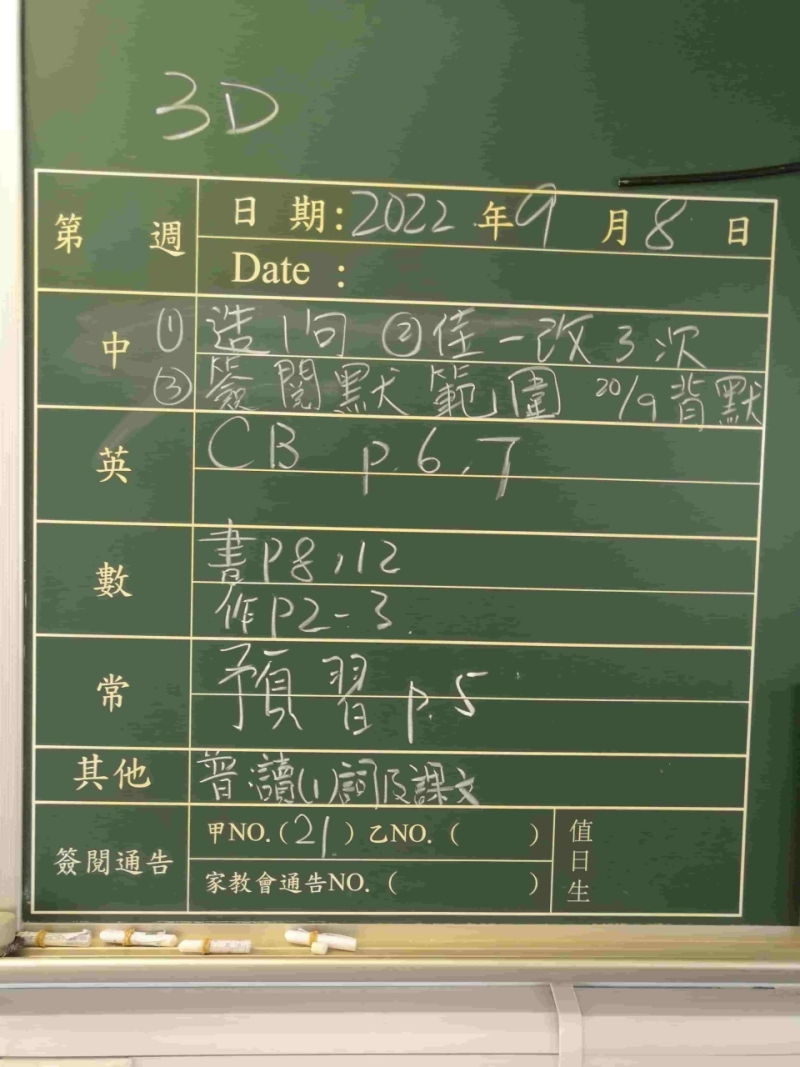 3D
第 週
日 期：2022 年 9 月 8 日
Date :
中 ① 造1句 ②佳一改3次
③ 簽閱默範圍 20/9 背默
英 CB p.6,7
數 書P8,12
作P2-3
常 預習 p.5
其他 普:讀(1)詞及課文
簽閱通告 甲NO.(21)乙NO.( ) 值日生
家教會通告NO.( )